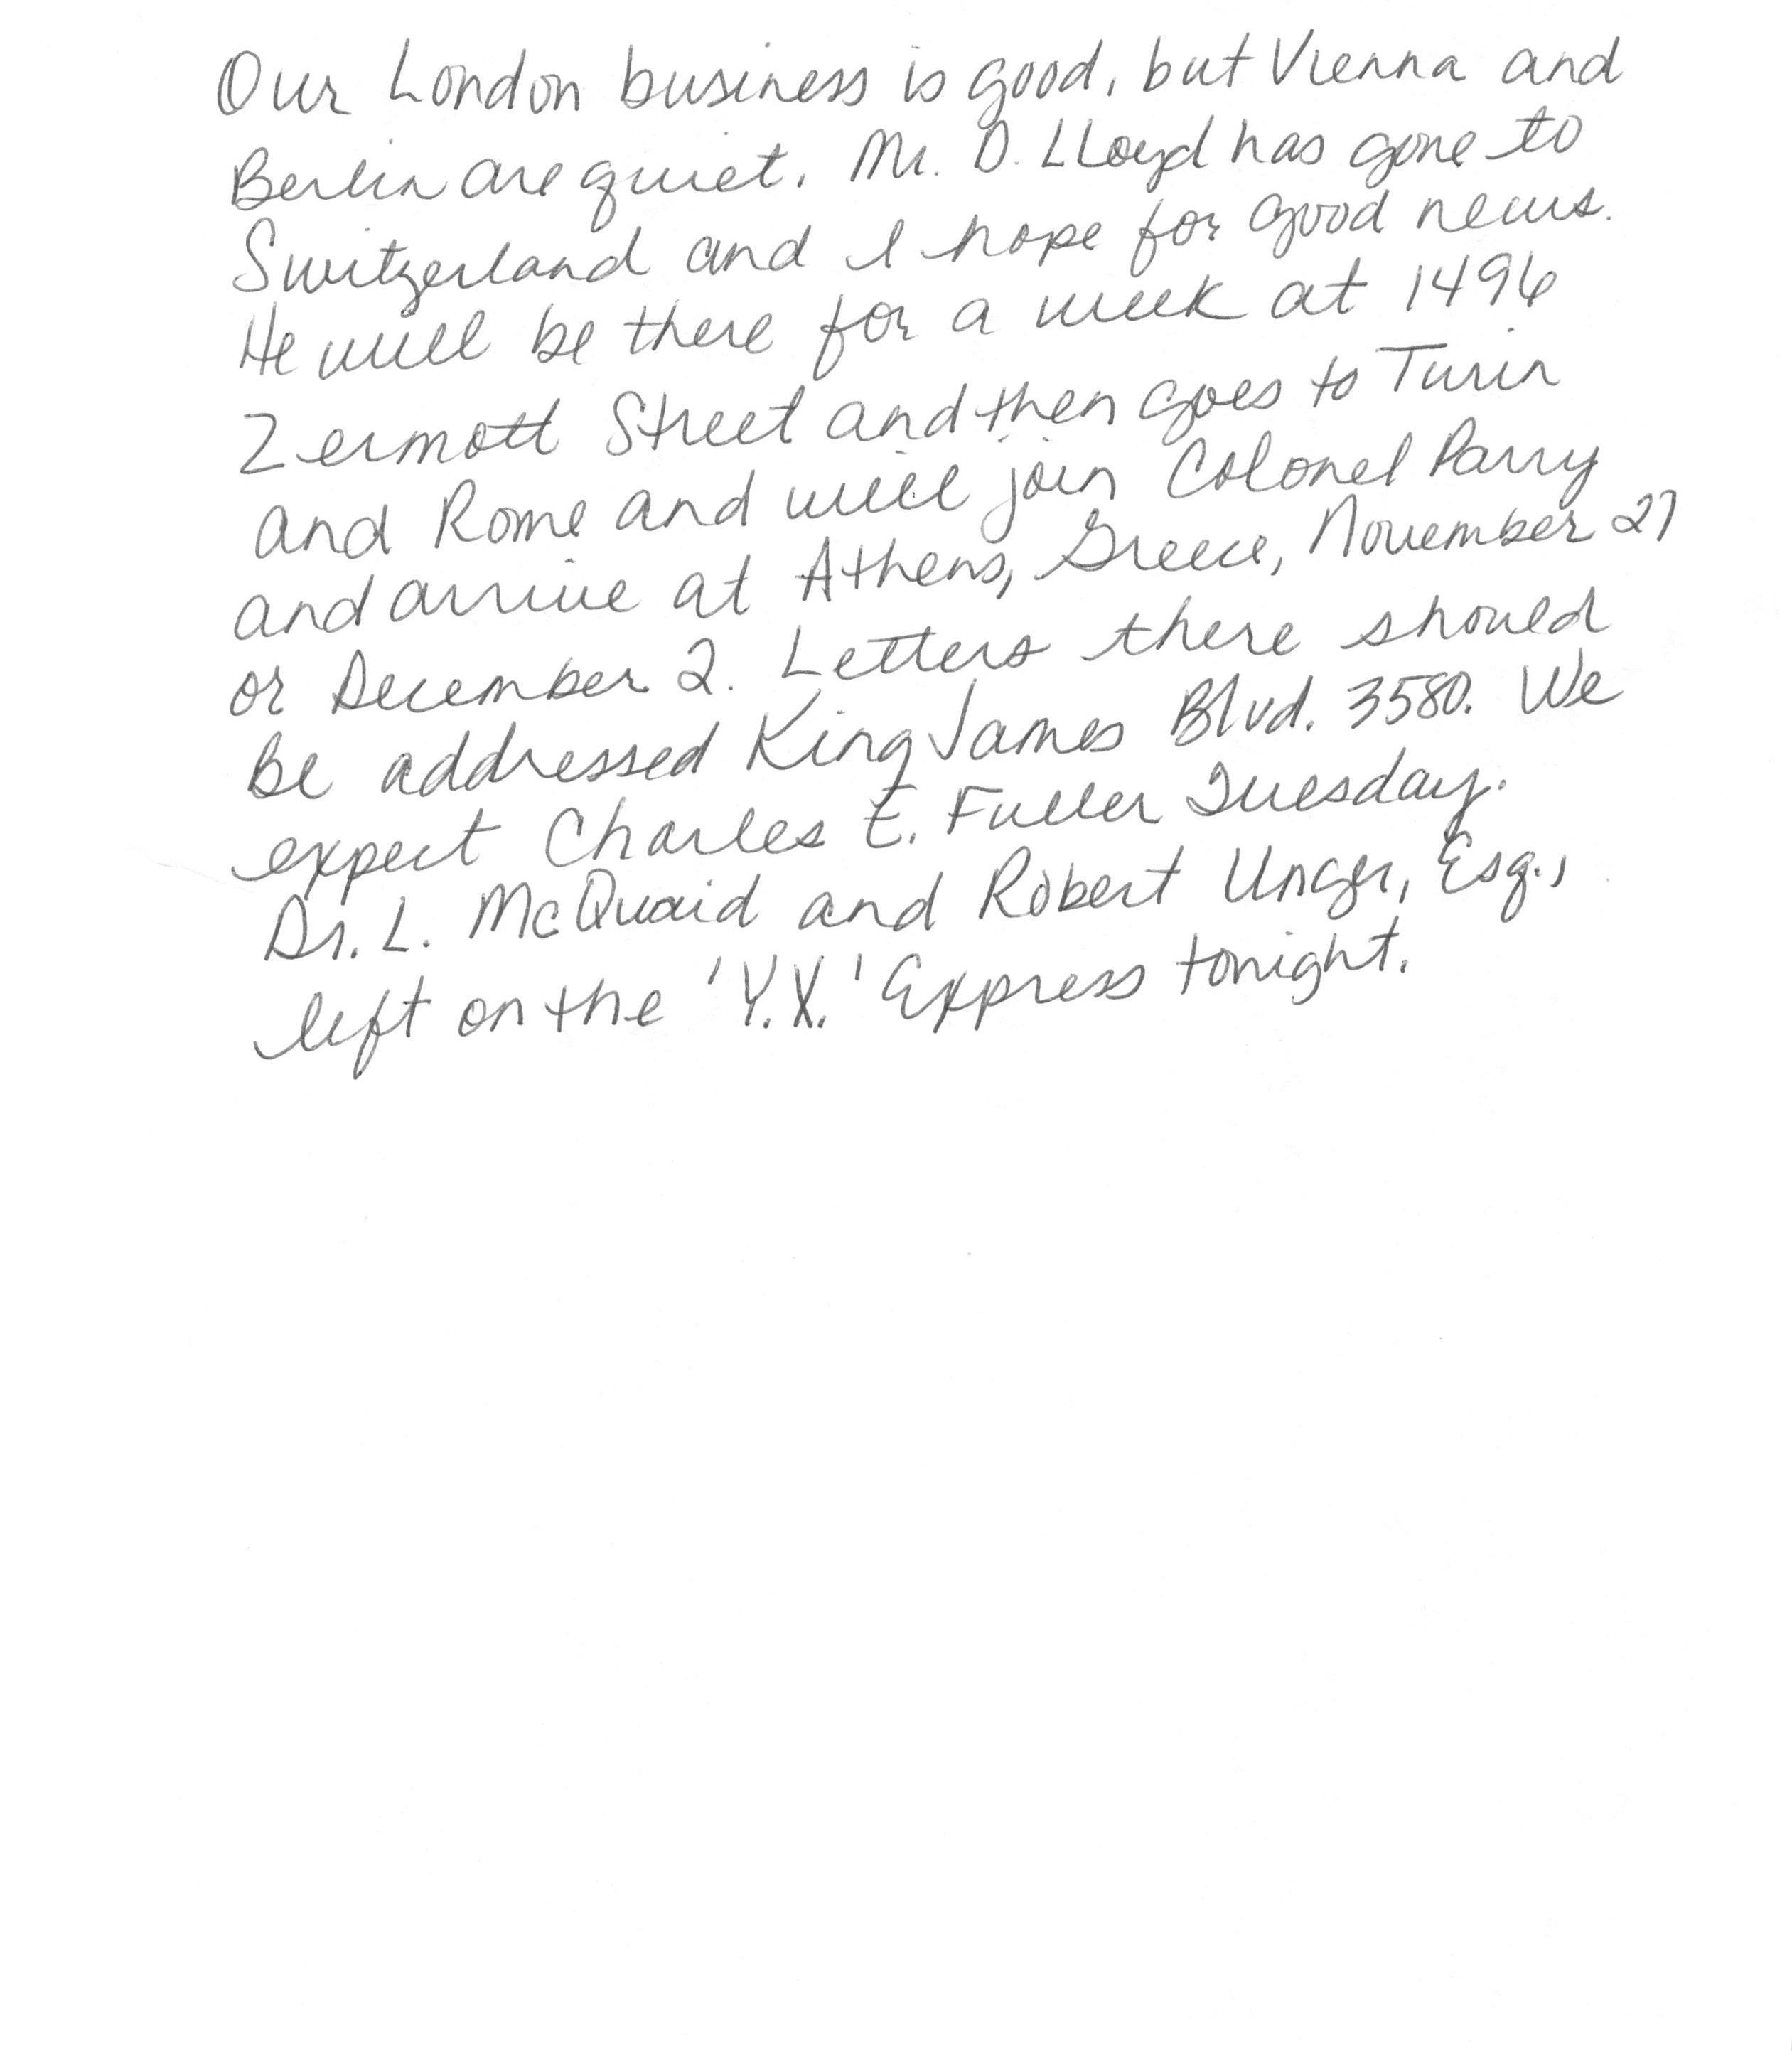 Our London business is good, but Vienna and
Berlin are quiet. Mr. D. LLoyd has gone to
Switzerland and I hope for good news.
He will be there for a week at 1496
Zermott Street and then goes to Turin
and Rome and will join Colonel Parry
and arrive at Athens, Greece, November 27
or December 2. Letters there should
be addressed King James Blvd. 3580. We
expect Charles E. Fuller Tuesday.
Dr. L. McQuaid and Robert Unger, Esq.,
left on the 'Y.X.' Express tonight.